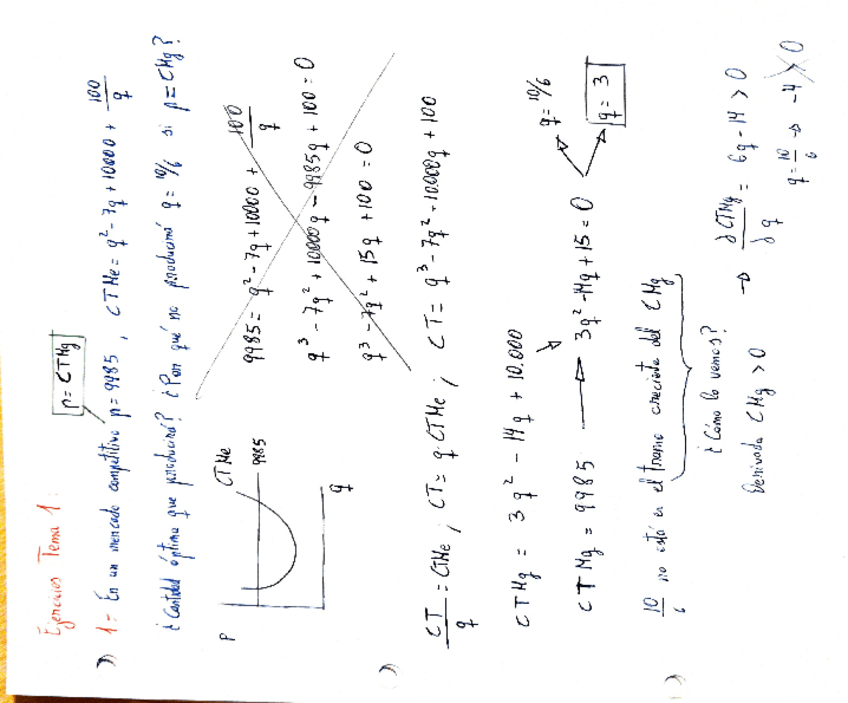 Ejercicios Tema 1:
p = CTMg
1 = En un mercado competitivo p = 9985 , CTMe = q² - 7q + 10000 + 100/q
¿Cantidad óptima que producirá? ¿Por qué no producirá q = 10/6 si p = CMg?
P
CTMe
9985
q
9985 = q² - 7q + 10000 + 100/q
q³ - 7q² + 10000q - 9985q + 100 = 0
q³ - 7q² + 15q + 100 = 0
CT/q = CTMe ; CT = q·CTMe ; CT = q³ - 7q² + 10.000q + 100
CTMg = 3q² - 14q + 10.000
CTMg = 9985 → 3q² - 14q + 15 = 0
q = 10/6
q = 3
10/6 no está en el tramo creciente del CMg
¿Cómo lo vemos?
Derivada CMg > 0
→ ∂CTMg/∂q = 6q - 14 > 0
q = 10/6 → -4 ≯ 0